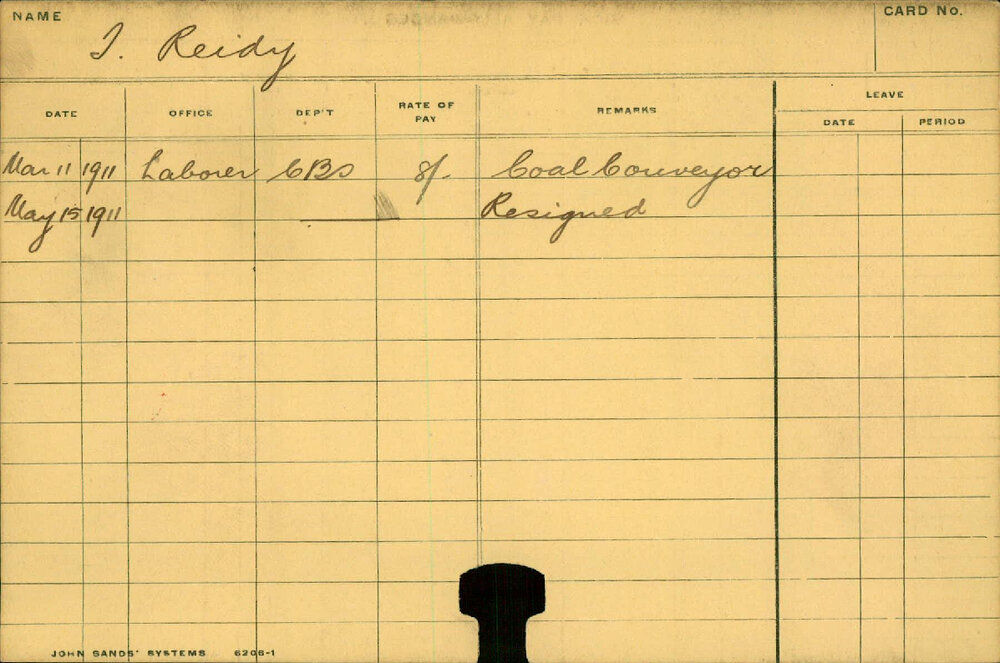 NAME
CARD No.
J. Reidy
DATE OFFICE DEP'T RATE OF PAY REMARKS LEAVE
DATE PERIOD
Mar 11 1911 Laborer CBS 8/- Coal Conveyor
May 15 1911 Resigned
JOHN SANDS' SYSTEMS 6206-1